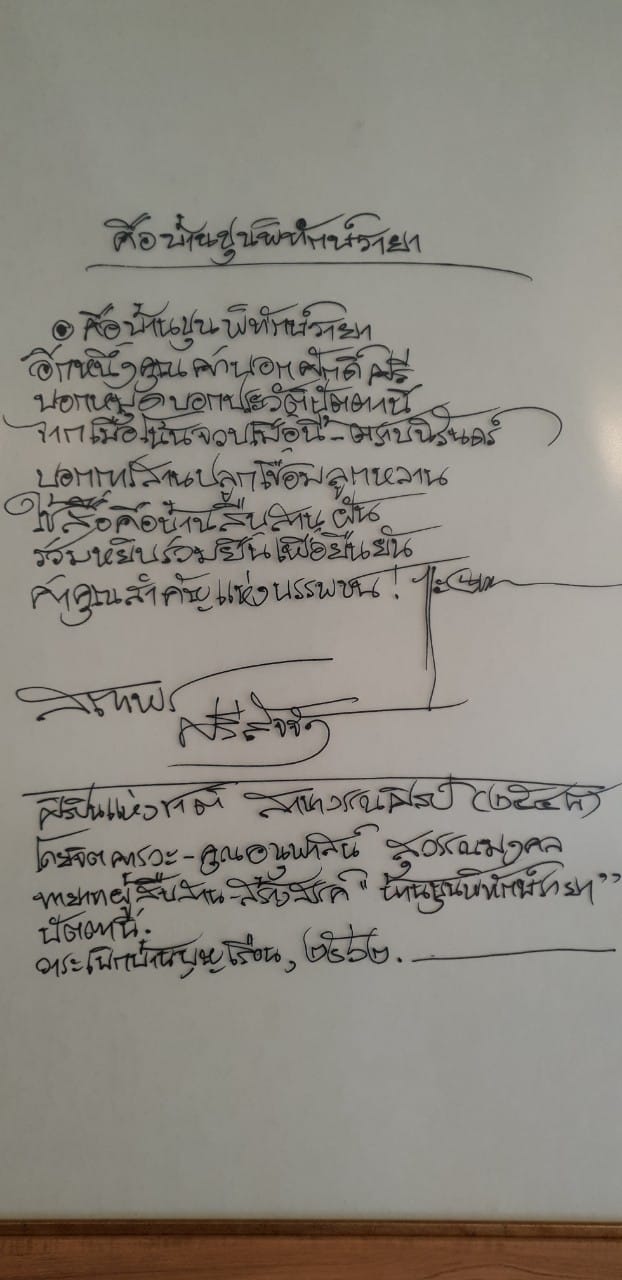 คือบ้านขุนพิทักษ์รายา
คือบ้านขุนพิทักษ์รายา
อีกหนึ่งคุณค่าบอกศักดิ์ศรี
บอกหมุดบอกประวัติปัตตานี
จากเมื่อโน้นจวบเมื่อนี้-ตราบนิรันดร์
บอกการสานปลูกเชื่อมลูกหลาน
ใช้สื่อคือบ้านสืบสานฝัน
ร่วมหยิบร่วมยืนเพื่อยืนยัน
ค่าคุณสำคัญแห่งบรรพชน!
สถาพร
ศรีสัจจัง
ศิลปินแห่งชาติ สาขาวรรณศิลป์ (๒๕๔๘)
โดยจิตคารวะ-คุณอนุพาสน์ สุวรรณมงคล
ทายาทผู้สืบสาน-สร้างสรรค์ "บ้านขุนพิทักษ์รายา"
ปัตตานี.
บ้านบุญเรือน, ๒๕๖๒.